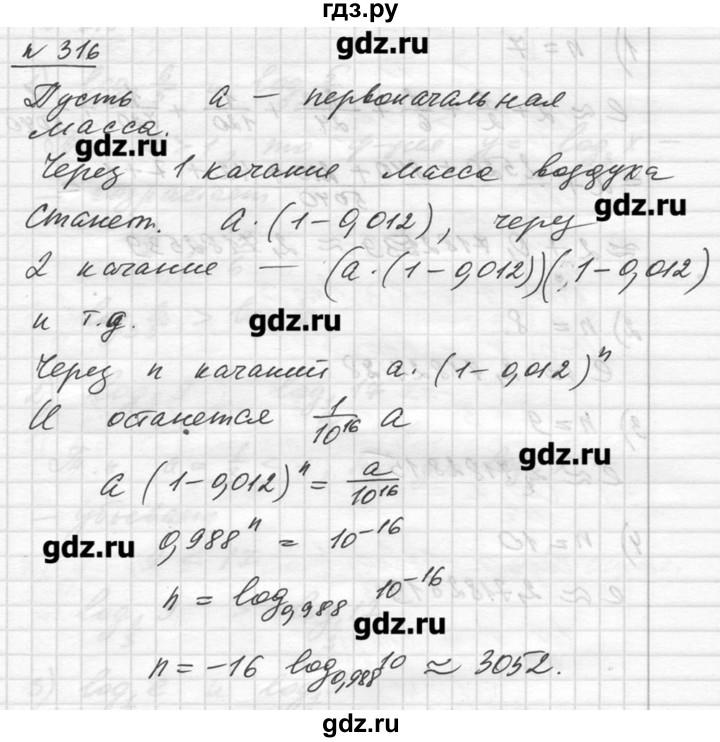 гдз.ру
gdz.ru
n 316
Пусть a — первоначальная
масса.
gdz.ru
Через 1 качание масса воздуха
gdz.ru
Станет. a·(1-0,012), через
2 качание — (a·(1-0,012))(1-0,012)
и т.д.
gdz.ru
Через n качаний a·(1-0,012)^n
И останется 1/10^16 a
gdz.ru
a(1-0,012)^n = a/10^16
gdz.ru
0,988^n = 10^-16
n = log_0,988 10^-16
gdz.ru
n = -16 log_0,988 10 ≈ 3052.
gdz.ru